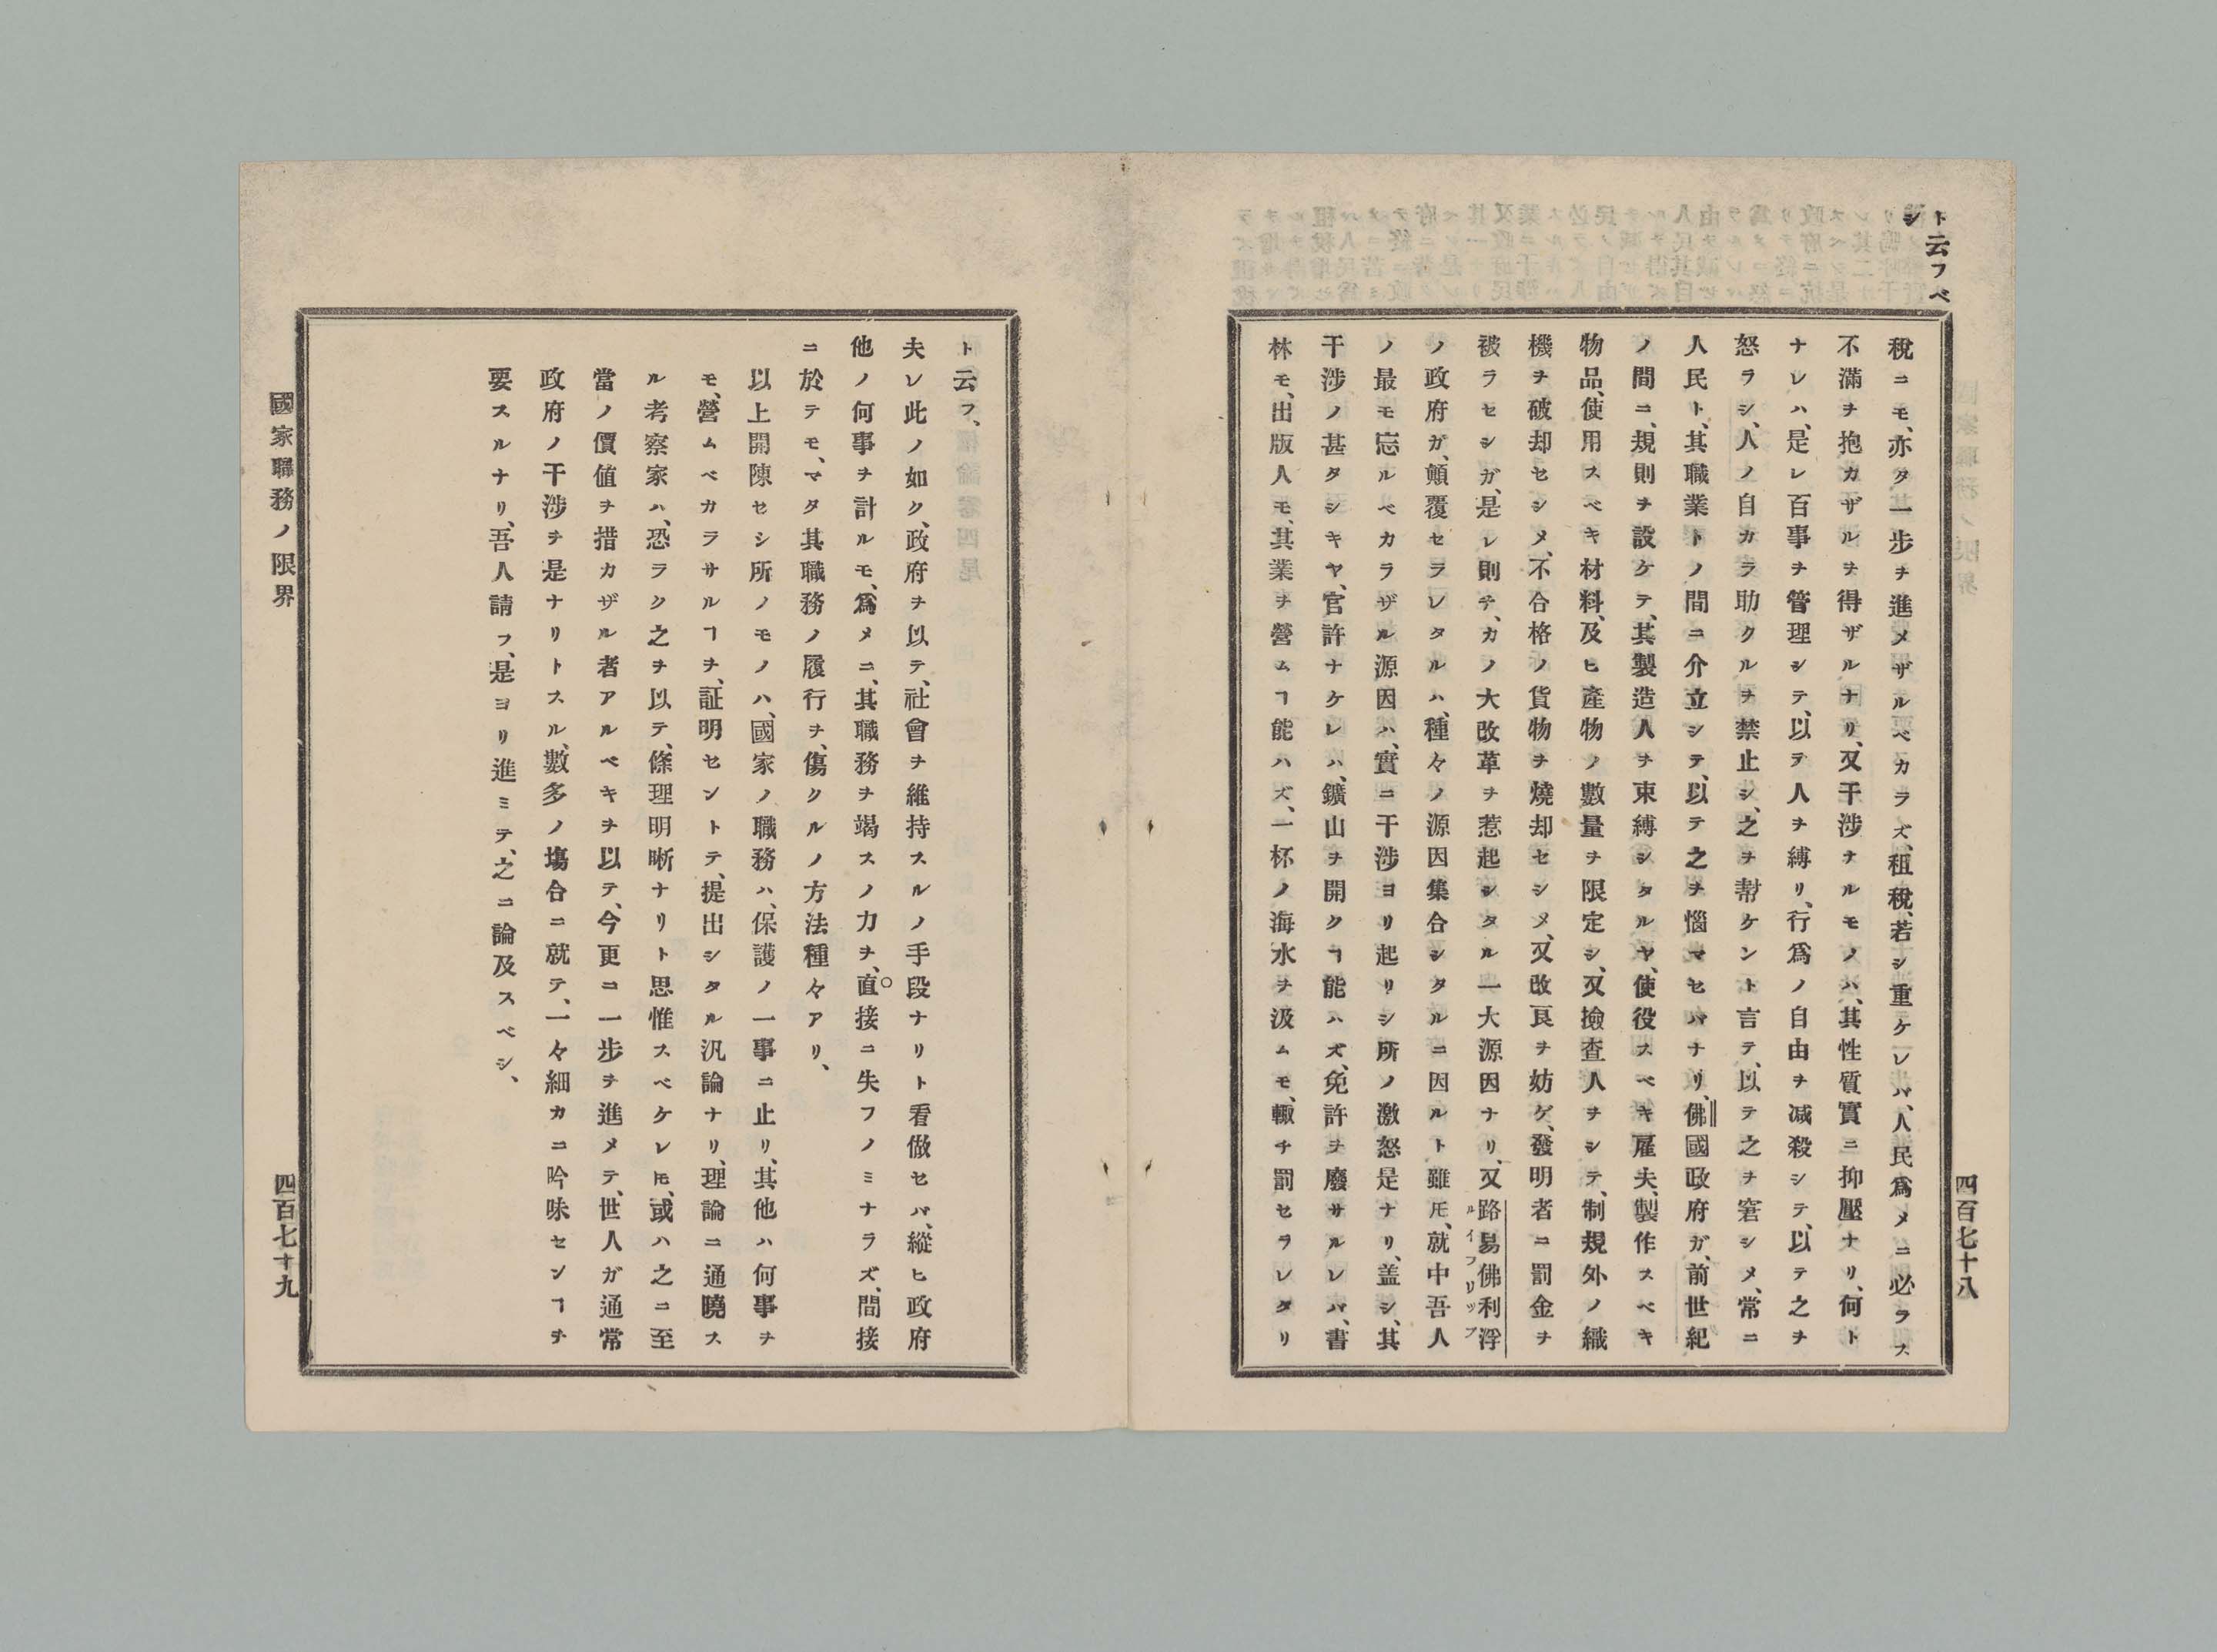 ト云フベ
シ
稅ニモ、亦タ一步ヲ進メザルベカラズ、租稅、若シ重ケレバ、人民爲メニ必ラス
不滿ヲ抱カザルヲ得ザルナリ、又干涉ナルモノハ、其性質實ニ抑壓ナリ、何ト
ナレハ、是レ百事ヲ管理シテ、以テ人ヲ縛リ、行爲ノ自由ヲ减殺シテ、以テ之ヲ
怒ラシ、人ノ自カラ助クルヲ禁止シ、之ヲ幇ケント言テ、以テ之ヲ窘シメ、常ニ
人民ト、其職業トノ間ニ介立シテ、以テ之ヲ惱マセバナリ、佛國政府ガ、前世紀
ノ間ニ、規則ヲ設ケテ、其製造人ヲ束縛シタルヤ、使役スベキ雇夫、製作スベキ
物品、使用スベキ材料、及ヒ產物ノ數量ヲ限定シ、又撿查人ヲシテ、制規外ノ織
機ヲ破却セシメ、不合格ノ貨物ヲ燒却セシメ、又改良ヲ妨ゲ、發明者ニ罰金ヲ
被ラセシガ、是レ則チ、カノ大改革ヲ惹起シタル一大源因ナリ、又路易佛利浮
ルイフリップ
ノ政府ガ、顚覆セラレタルハ、種々ノ源因集合シタルニ因ルト雖𪜈、就中吾人
ノ最モ忘ルベカラザル源因ハ、實ニ干涉ヨリ起リシ所ノ激怒是ナリ、盖シ、其
干涉ノ甚タシキヤ、官許ナケレハ、鑛山ヲ開クヿ能ハズ、免許ヲ廢サルレバ、書
林モ、出版人モ、其業ヲ營ムヿ能ハズ、一杯ノ海水ヲ汲ムモ、輙チ罰セラレタリ
四百七十八
ト云フ、
夫レ此ノ如ク、政府ヲ以テ、社會ヲ維持スルノ手段ナリト看做セバ、縱ヒ政府
他ノ何事ヲ計ルモ、爲メニ、其職務ヲ竭スノ力ヲ、直接ニ失フノミナラズ、間接
ニ於テモ、マタ其職務ノ履行ヲ、傷クルノ方法種々アリ、
以上開陳セシ所ノモノハ、國家ノ職務ハ、保護ノ一事ニ止リ、其他ハ何事ヲ
モ、營ムベカラサルヿヲ、証明セントテ、提出シタル汎論ナリ、理論ニ通曉ス
ル考察家ハ、恐ラク之ヲ以テ、條理明晰ナリト思惟スベケレ𪜈、或ハ之ニ至
當ノ價値ヲ措カザル者アルベキヲ以テ、今更ニ一步ヲ進メテ、世人ガ通常
政府ノ干涉ヲ是ナリトスル、數多ノ塲合ニ就テ、一々細カニ吟味センヿヲ
要スルナリ、吾人請フ、是ヨリ進ミテ、之ニ論及スベシ、
國家職務ノ限界
四百七十九